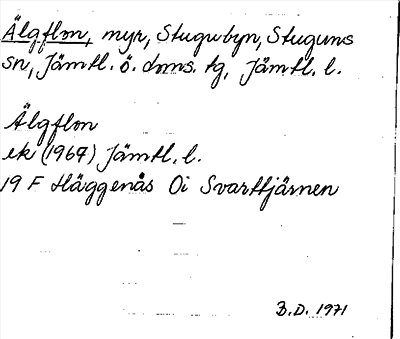 Älgflon, myr, Stugubyn, Stuguns
sn, Jämtl. ö. doms. tg, Jämtl. l.
Älgflon
ek (1967) Jämtl. l.
19 F Häggenås Oi Svarttjärnen
B.D. 1971